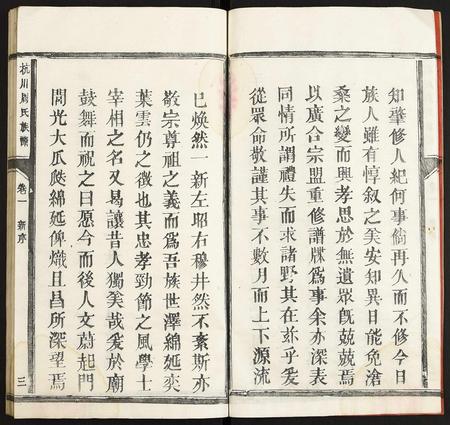 知肇修人紀何事倘再久而不修今日
族人雖有惇敘之美安知異日能免滄
桑之變而興孝思於無遺眾既兢兢焉
以廣合宗盟重修譜牒為事余亦深表
同情所謂禮失而求諸野其在茲乎爰
從眾命敬謹其事不數月而上下源流
已煥然一新左昭右穆井然不紊斯亦
敬宗尊祖之義而為吾族世澤綿延奕
葉雲仍之徵也其忠孝勁節之風學士
宰相之名又曷讓昔人獨美哉爰於廟
鼓舞而祝之曰愿今而後人文蔚起門
閭光大瓜瓞綿延俾熾且昌所深望焉
杭川周氏族譜
卷一
新序
三